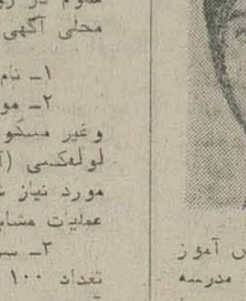 علوم در رو
محلی آگهی
۱ــ نام
۲ــ مو
وغیر مسکو
لوله‌کشی (آ
مورد نیاز ش
عملیات مشاب
۳ــ سر
تعداد ۱۰۰
ش آموز
مدرسه